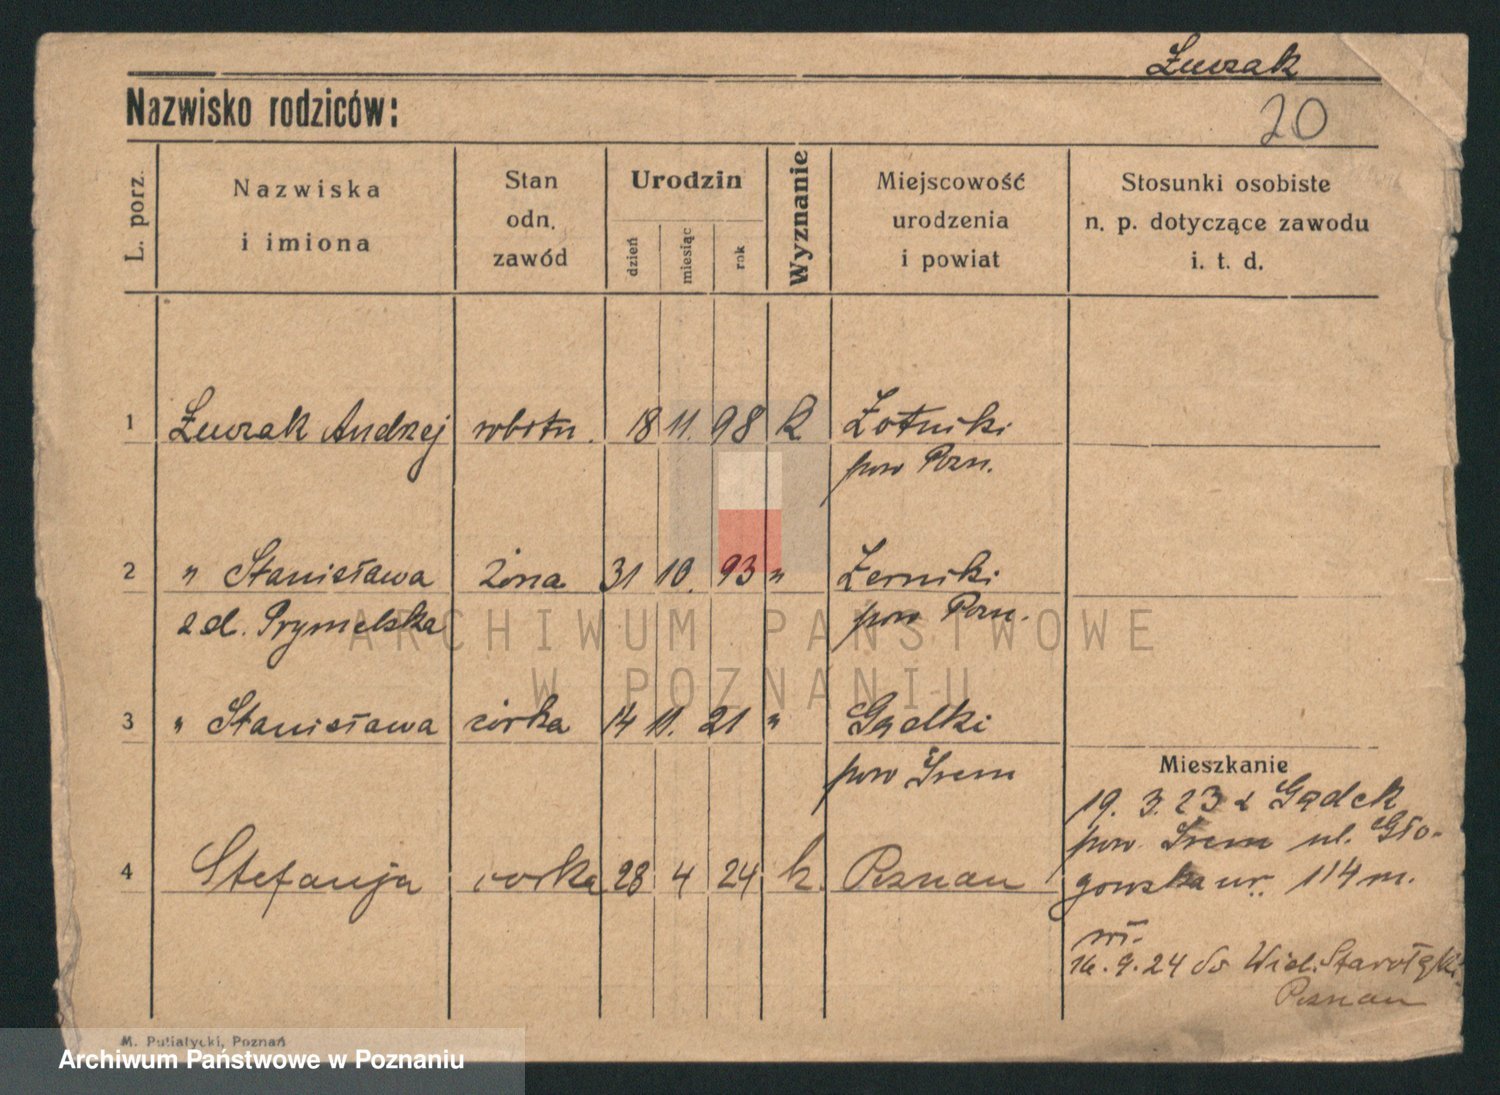 Żurzak
Nazwisko rodziców:
20
L. porz.
Nazwiska
i imiona
Stan
odn.
zawód
Urodzin
dzień
miesiąc
rok
Wyznanie
Miejscowość
urodzenia
i powiat
Stosunki osobiste
n. p. dotyczące zawodu
i. t. d.
1 Żurzak Andrzej robotn. 18 11. 98 k Złotniki
pow Pozn.
2 " Stanisława żona 31 10. 93 " Żerniki
z d. Prymelska pow Pozn.
3 " Stanisława córka 14 11. 21 " Gądki
pow Śrem
Mieszkanie
19. 3. 23 z Gądek
pow. Śrem ul. Gło-
4 Stefanja córka 28 4 24 k. Poznań
gowska nr. 114 m.
16. 9. 24 do Wiel. Starołęki
Poznań
M. Putiatycki, Poznań
ARCHIWUM PAŃSTWOWE
W POZNANIU
Archiwum Państwowe w Poznaniu